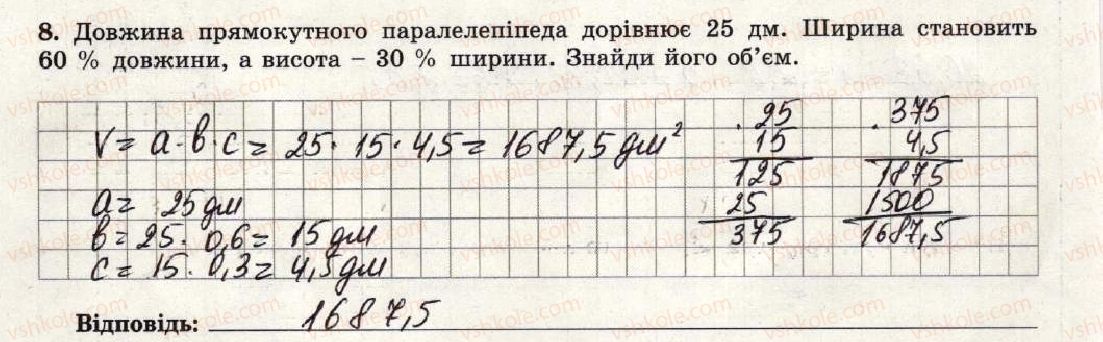 8. Довжина прямокутного паралелепіпеда дорівнює 25 дм. Ширина становить
60 % довжини, а висота – 30 % ширини. Знайди його об'єм.
V = a · b · c = 25 · 15 · 4,5 = 1687,5 дм²
a = 25 дм
b = 25 · 0,6 = 15 дм
c = 15 · 0,3 = 4,5 дм
· 25
15
125
25
375
· 375
4,5
1875
1500
1687,5
Відповідь: 1687,5